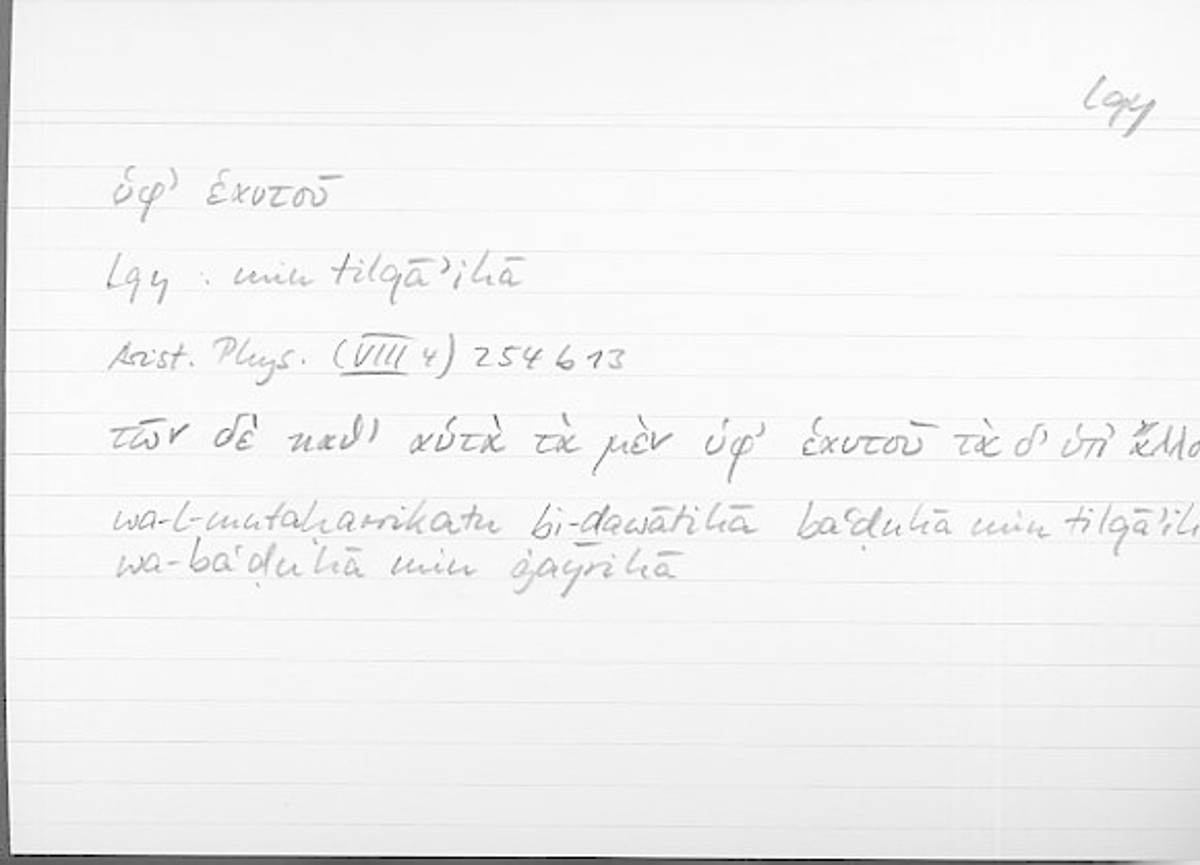 lqy
ὑφ' ἑαυτοῦ
lqy : min tilqā'ihā
Arist. Phys. (VIII 4) 254 b 13
τῶν δὲ καθ' αὑτὰ τὰ μὲν ὑφ' ἑαυτοῦ τὰ δ' ὑπ' ἄλλο
wa-l-mutaḥarrikatu bi-ḏawātihā ba'ḍuhā min tilqā'ih
wa-ba'ḍuhā min ġayrihā